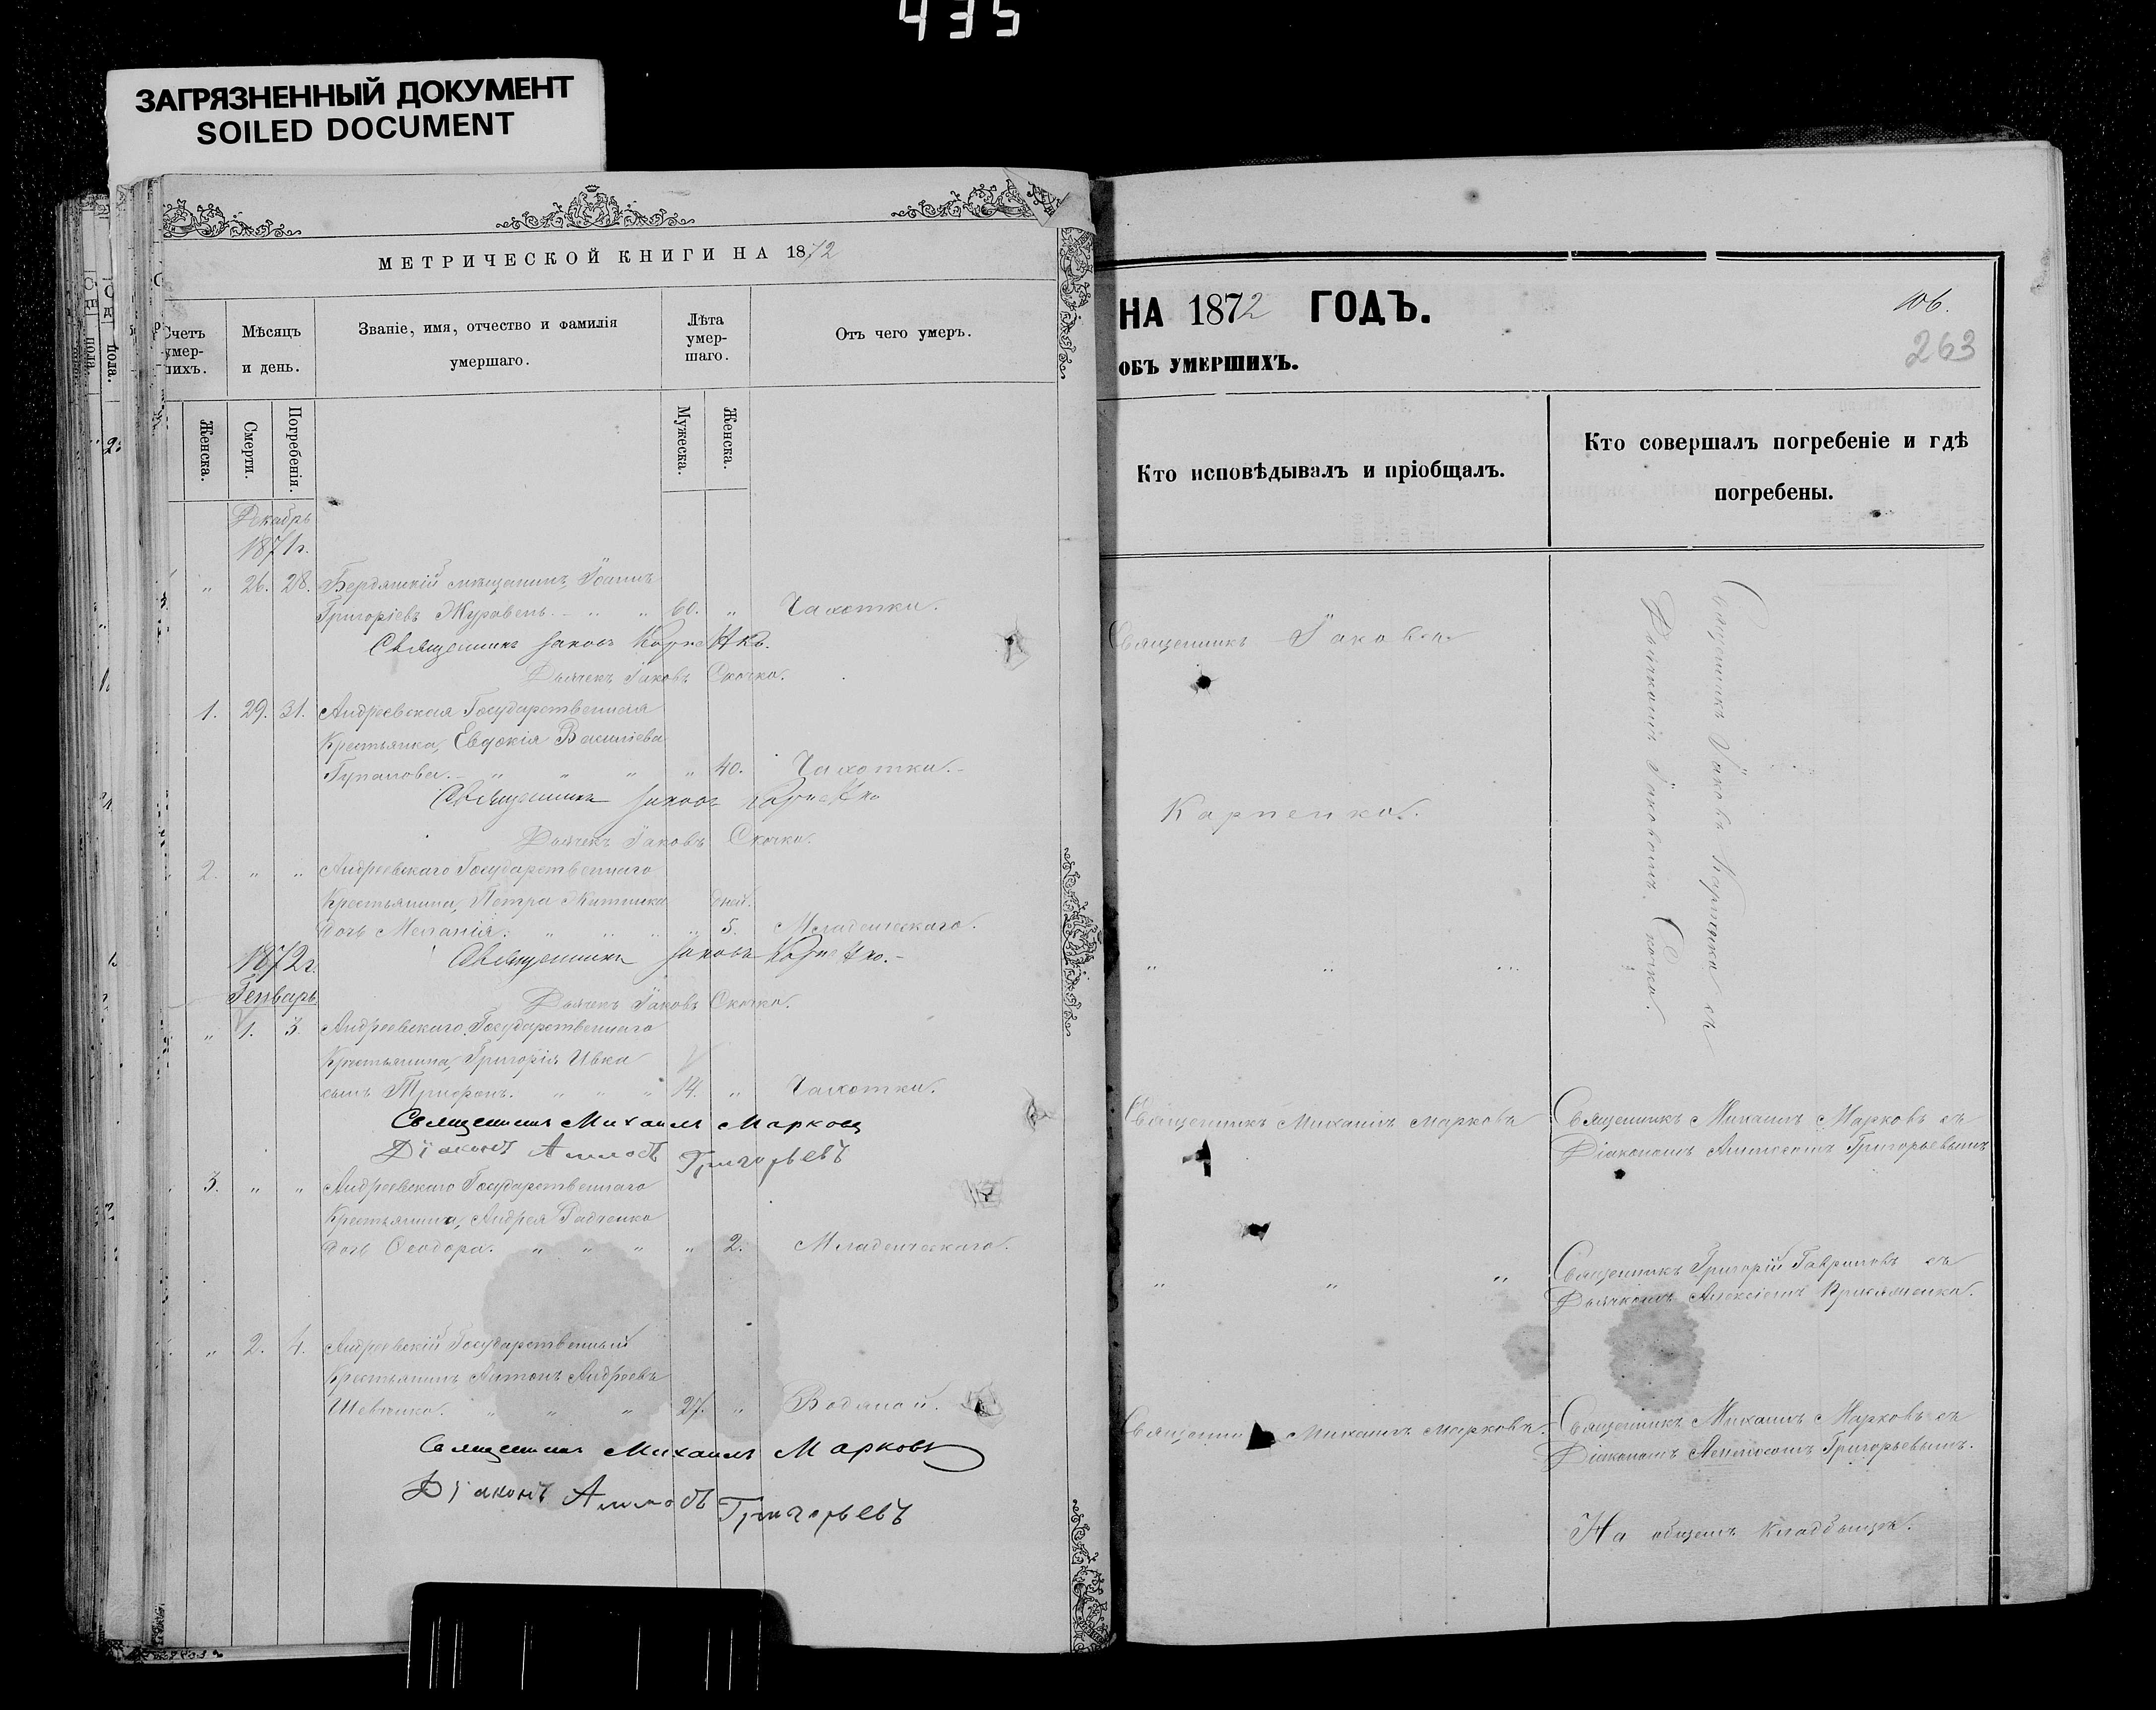 435
ЗАГРЯЗНЕННЫЙ ДОКУМЕНТ
SOILED DOCUMENT
МЕТРИЧЕСКОЙ КНИГИ НА 1872
Счетъ умер-шихъ.
Мѣсяцъ и день.
Званіе, имя, отчество и фамилія умершаго.
Лѣта умер-шаго.
Отъ чего умеръ.
Женска.
Смерти.
Погребенія.
Мужеска.
Женска.
Декабрь
1871 г.
" 26. 28. Бердянскій мѣщанинъ, Іоаннъ
Григоріевъ Журавель. - " " 60. " Чахотки.
Священникъ Іаковъ Карпенко.
Дьячекъ Іаковъ Скочко.
1. 29. 31. Андреевская Государственная
Крестьянка, Евдокія Васильева
" " " " 40. Чахотки. -
Священникъ Іаковъ Карпенко
Дьячекъ Іаковъ Скочко.
2. " " Андреевскаго Государственнаго
Крестьянина, Петра дней.
дочь Меланія. " " " " 5. Младенческаго.
Священникъ Іаковъ Карпенко. -
1872 г.
Генварь
Дьячекъ Іаковъ Скочко.
" 1. 3. Андреевскаго Государственнаго
Крестьянина, Григорія Ивка
сынъ Трифонъ. " " " 14. " Чахотки.
Священникъ Михаилъ Марковъ
Діаконъ Григорьевъ
3. " " Андреевскаго Государственнаго
Крестьянина, Андрея Радченко
дочь Ѳеодора. " " " " 2. Младенческаго.
" 2. 4. Андреевскій Государственный
Крестьянинъ Антонъ Андреевъ
Шевченко. " " " 27. " Водяной.
Священникъ Михаилъ Марковъ
Діаконъ Григорьевъ
НА 1872 ГОДЪ.
106.
263
ОБЪ УМЕРШИХЪ.
Кто исповѣдывалъ и пріобщалъ.
Кто совершалъ погребеніе и гдѣ
погребены.
Священникъ Іаковъ
Карпенко.
Священникъ Іаковъ Карпенко съ
Дьячкомъ Іаковомъ Скочко.
" " "
Священникъ Михаилъ Марковъ
Священникъ Михаилъ Марковъ съ
Діакономъ Григорьевымъ
" " "
Священникъ Григорій Гавриловъ съ
Дьячкомъ Алексіемъ
Михаилъ Марковъ.
Священникъ Михаилъ Марковъ съ
Діакономъ Григорьевымъ.
На общемъ кладбищѣ.